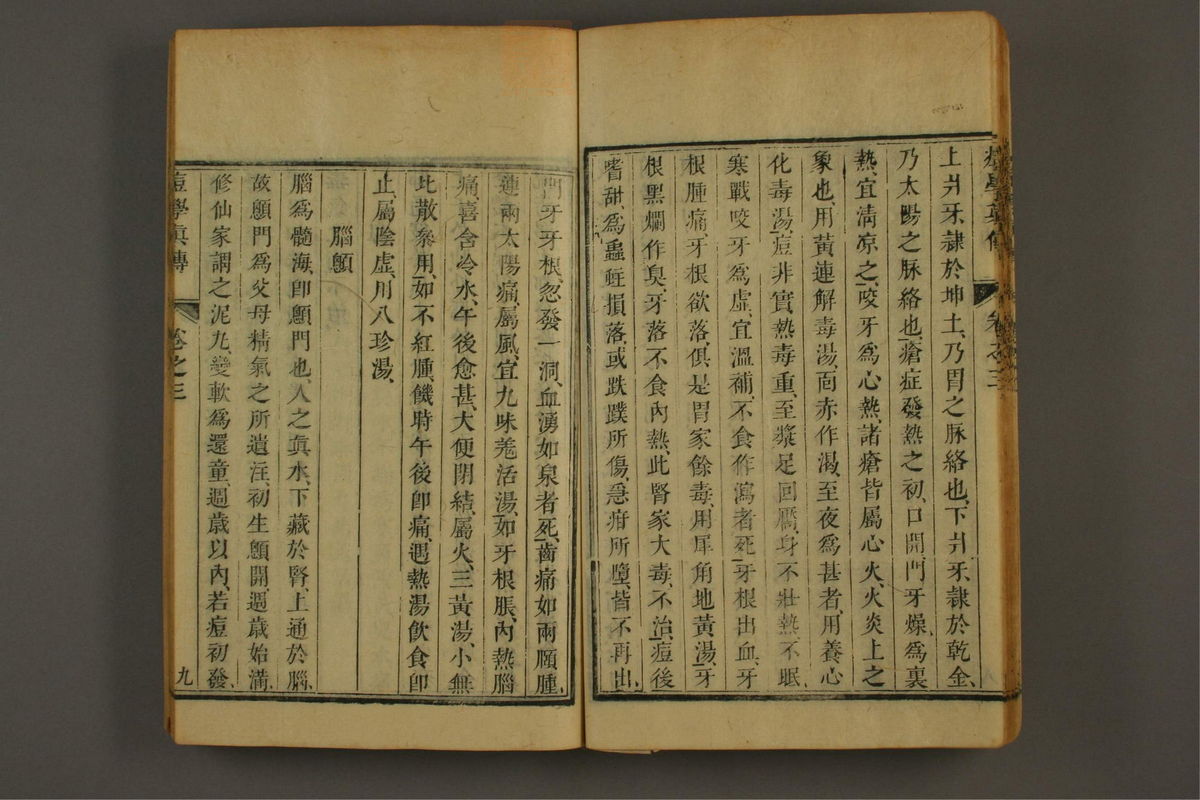 痘學真傳 卷之三
上爿牙、隸於坤土、乃胃之脉絡也、下爿牙、隸於乾金、
乃太陽之脉絡也、瘡症發熱之初、口開門牙燥、爲裏
熱、宜清凉之、咬牙爲心熱、諸瘡皆屬心火、火炎上之
象也、用黄連解毒湯、面赤作渴、至夜爲甚者、用養心
化毒湯、痘非實、熱毒重、至漿足回靨、身不壯熱、不眠、
寒戰咬牙爲虚、宜溫補、不食作瀉者死、牙根出血、牙
根腫痛、牙根欲落、俱是胃家餘毒、用犀角地黄湯、牙
根黑爛作臭、牙落不食內熱、此腎家大毒、不治、痘後
嗜甜、爲蟲蛀損落、或跌蹼所傷、急疳所墮、皆不再出、
門牙牙根、忽發一洞、血湧如泉者死、齒痛如兩頤腫、
連兩太陽痛、屬風、宜九味羗活湯、如牙根脹、內熱腦
痛、喜含冷水、午後愈甚、大便閉結、屬火、三黄湯、小無
比散叅用、如不紅腫、饑時午後卽痛、遇熱湯飲食卽
止、屬陰虚、用八珍湯、
腦顖
腦爲髓海、卽顖門也、人之眞水、下藏於腎、上通於腦、
故顖門爲父母精氣之所遺注、初生顖開、週歲始滿、
修仙家謂之泥丸、變軟爲還童、週歲以內、若痘初發、
痘學真傳 卷之三 九